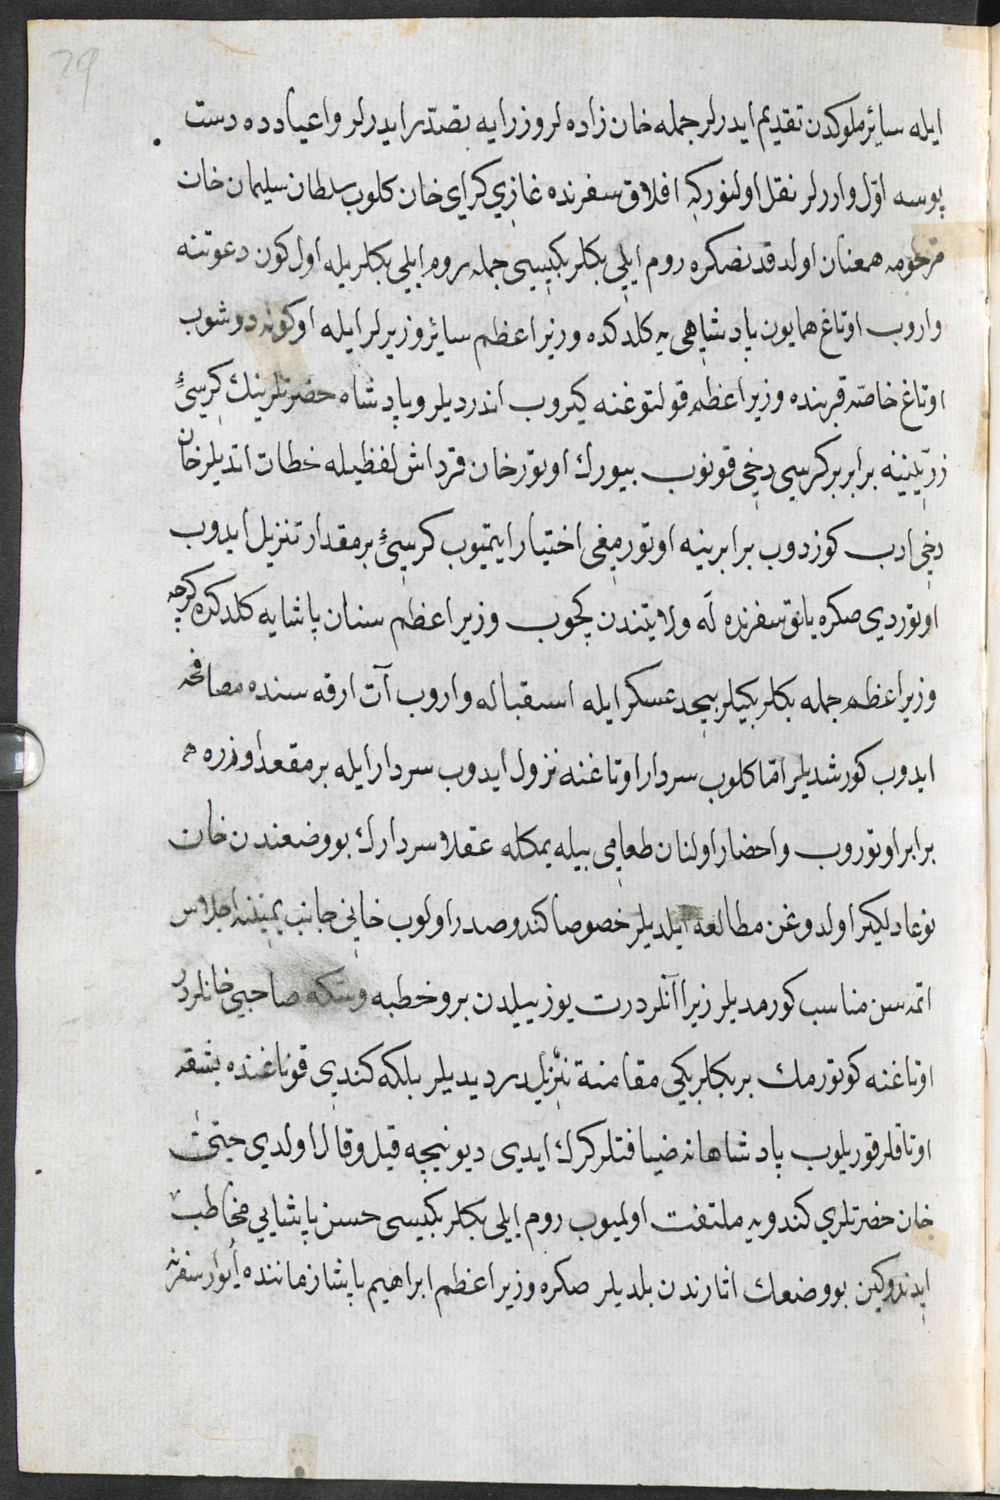 29
ايله سائر ملوكدن تقديم ايدرلر جمله خان زاده لر وزرايه تصدّر ايدرلر واعيادده دست
بوسه اوّل واررلر نقل اولنوركه افلاق سفرنده غازي كراي خان كلوب سلطان سليمان خان
مرحومه همعنان اولدقدنصكره روم ايلي بكلربكيسى جمله روم ايلي بكلريله اول كون دعوتنه
واروب اوتاغ همايون پادشاهى يه كلدكده وزير اعظم سائر وزيرلر ايله اوكونه دوشوب
اوتاغ خاصّه قربنده وزير اعظم قولتوغنه كيروب اندرديلر وپادشاه حضرتلرينك كرسئ
زرّينينه برابر بر كرسى دخي قونوب بيورك اوتور خان قرداش لفظيله خطاب اتديلر خان
دخي ادب كوزدوب برابرينه اوتورمغى اختيار ايتميوب كرسئ بر مقدار تنزيل ايدوب
اوتوردي صكره يانق سفرنده له ولايتندن كچوب وزير اعظم سنان پاشايه كلدكده كرچه
وزير اعظم جمله بكلربكيلر بيحد عسكر ايله استقباله واروب آت ارقه سنده مصافحه
ايدوب كورشديلر امّا كلوب سردار اوتاغنه نزول ايدوب سردار ايله بر مقعد اوزره
برابر اوتوروب واحضار اولنان طعامي بيله يمكله عقلا سردارك بو وضعندن خان
نوعا دلكير اولدوغن مطالعه ايلديلر خصوصا كندو صدر اولوب خاني جانب يمينه اجلاس
اتمه سن مناسب كورمديلر زيرا آنلر درت يوز ييلدن برو خطبه وسكه صاحبي خانلردر
اوتاغنه كوتورمك بر بكلربكي مقامنه تنزيلدر ديديلر بلكه كندي قوناغنده بشقه
اوتاقلر قوريلوب پادشاهانه ضيافتلر كرك ايدى ديو نيچه قيل وقال اولدي حتى
خان حضرتلري كندويه ملتفت اولميوب روم ايلي بكلربكيسى حسن پاشايي مخاطب
ايدندوكين بو وضعك اثارندن بلديلر صكره وزير اعظم ابراهيم پاشا زماننده ايوار سفرنه